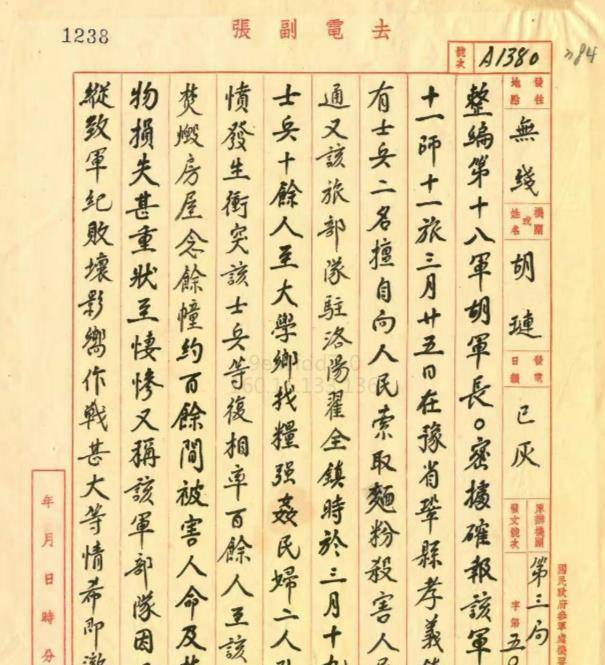 去電副張
1238
號次 A1380
發往地點 無綫
機關或姓名 胡璉
發電日韻 已灰
原辦機關 第三局
發文號次 字第五
整編第十八軍胡軍長○密據確報該軍
十一師十一旅三月廿五日在豫省鞏縣孝義
有士兵二名擅自向人民索取麵粉殺害人
通又該旅部隊駐洛陽翟全鎮時於三月十九
士兵十餘人至大學鄉找糧强姦民婦二人
憤發生衝突該士兵等復相率百餘人至該
焚燬房屋念餘幢約百餘間被害人命及
物損失甚重狀至悽慘又稱該軍部隊因
縱致軍紀敗壞影響作戰甚大等情希即
年月日時分
國民政府參軍處機要